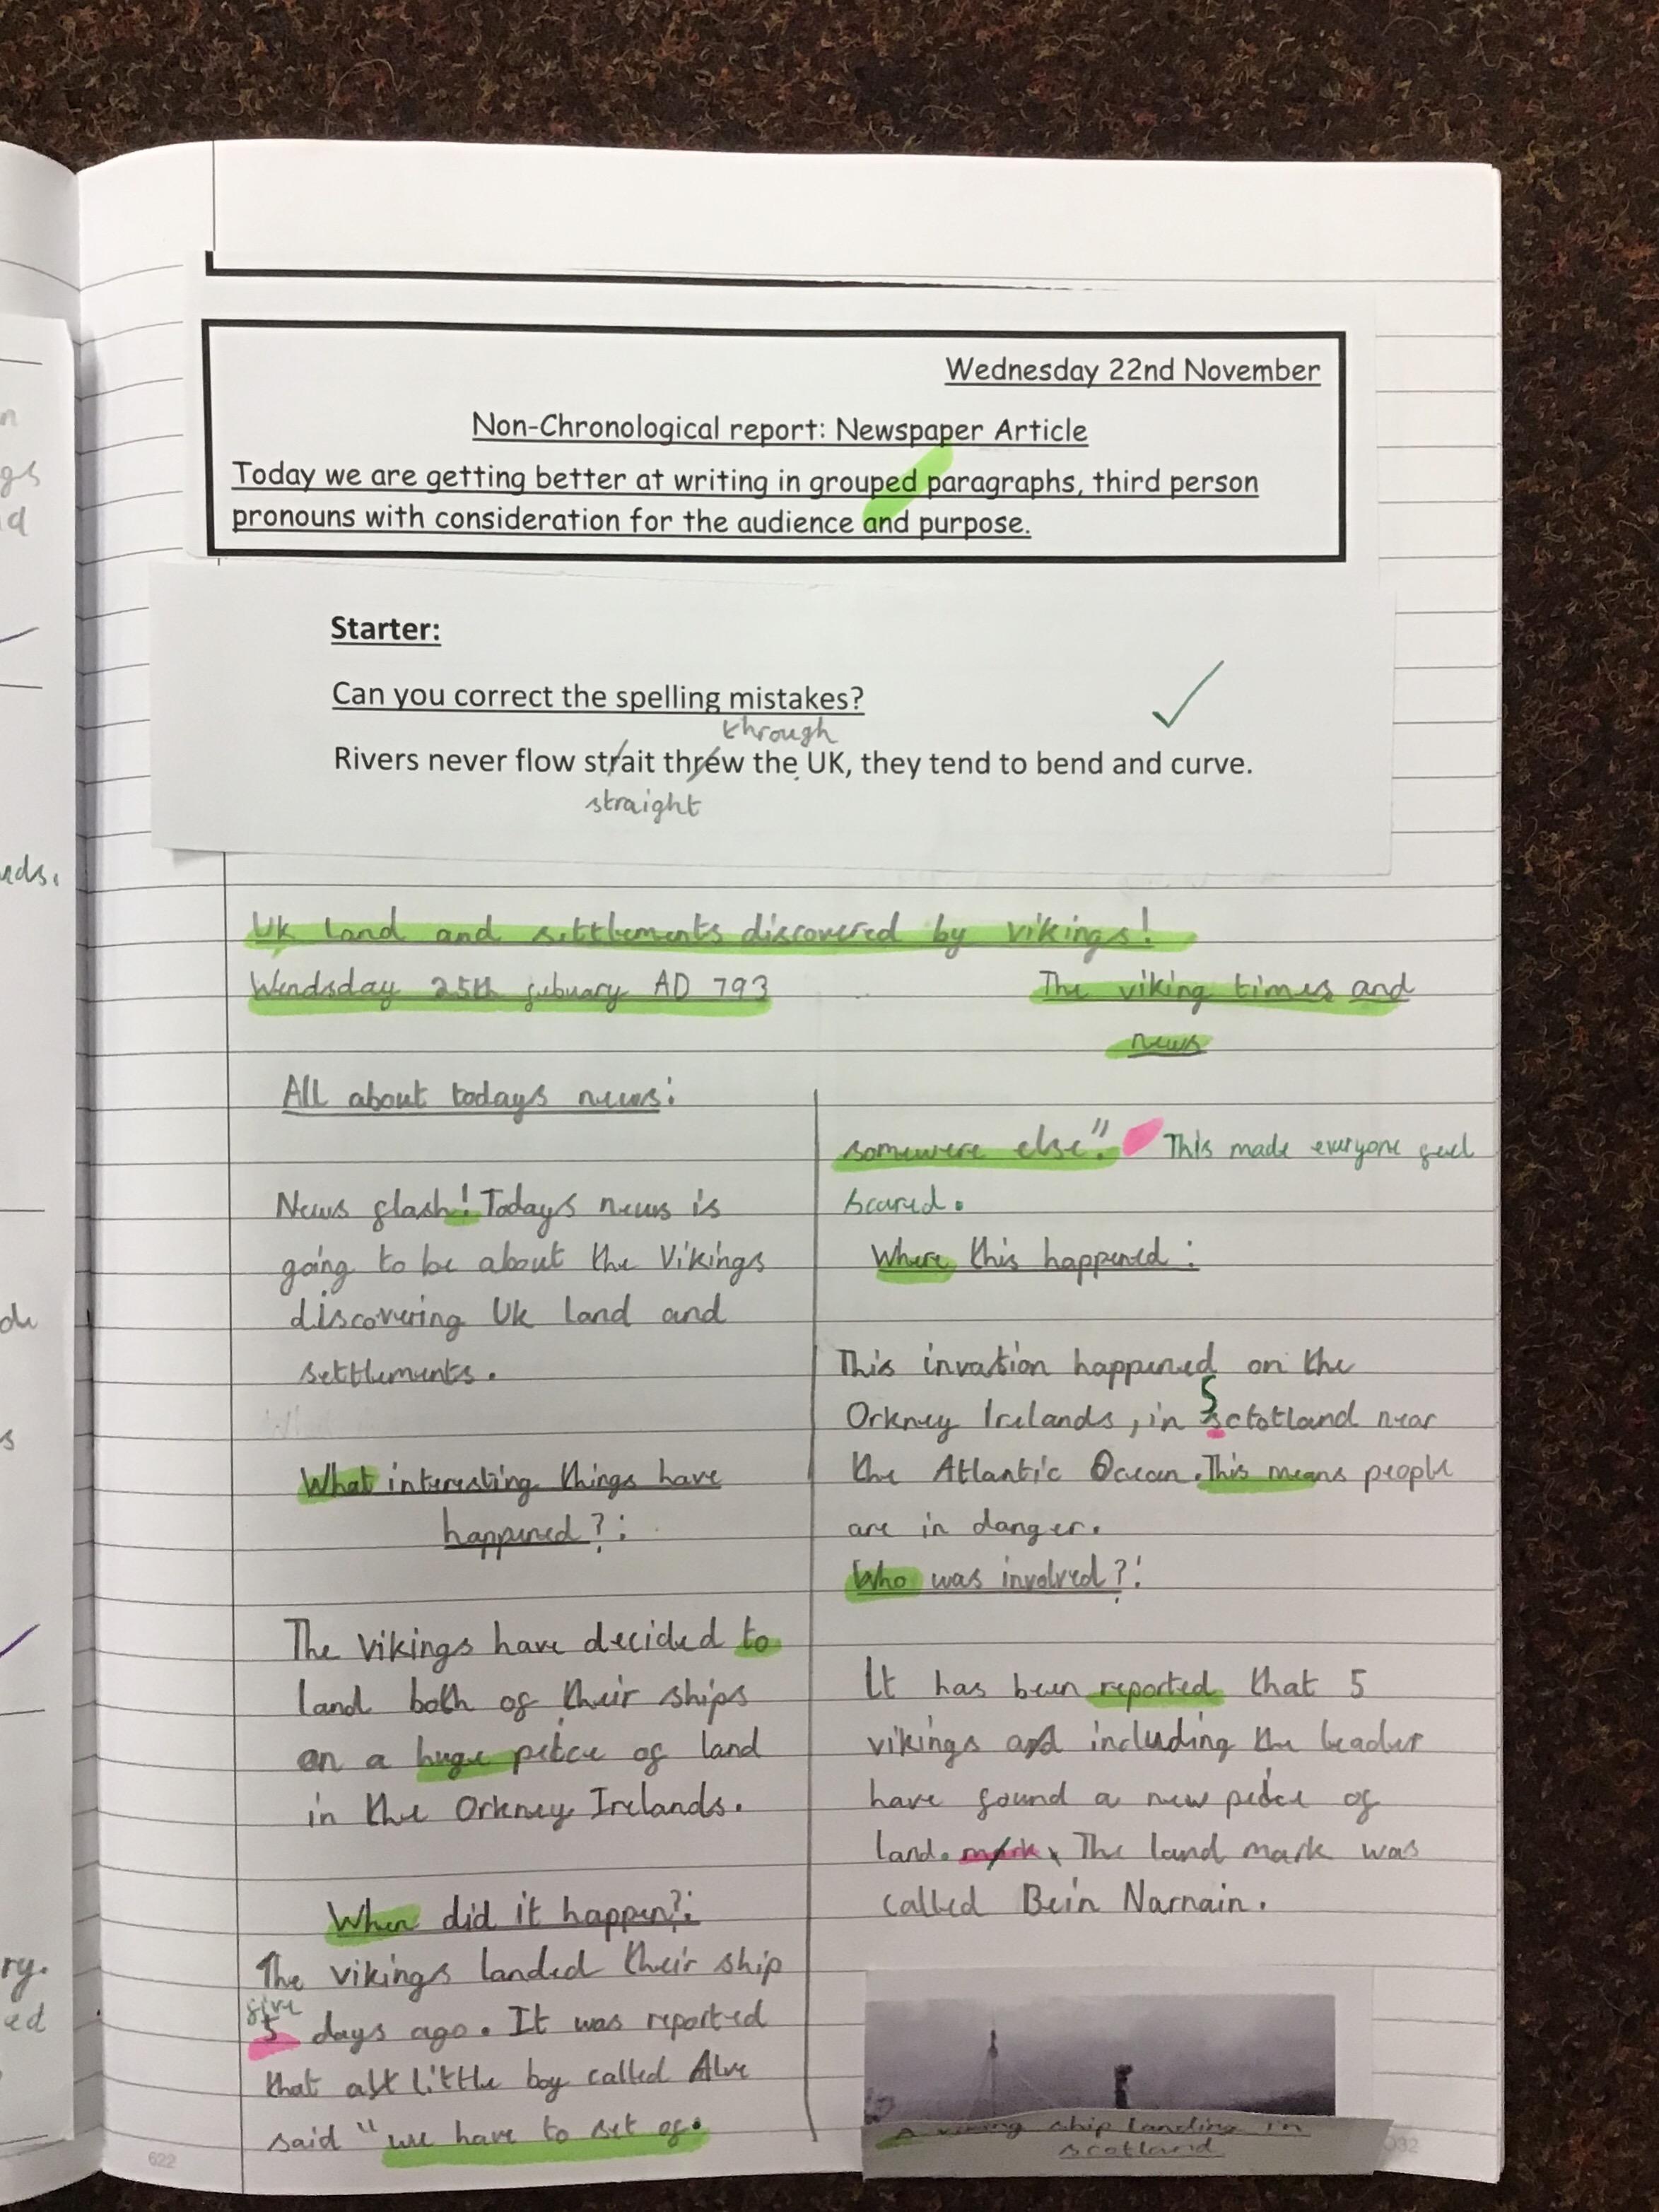 Wednesday 22nd November
Non-Chronological report: Newspaper Article
Today we are getting better at writing in grouped paragraphs, third person
pronouns with consideration for the audience and purpose.
Starter:
Can you correct the spelling mistakes?
through
Rivers never flow strait threw the UK, they tend to bend and curve.
straight
Uk land and settlements discovered by vikings!
Wendsday 25th febuary AD 793
The viking times and
news
All about todays news:
News flash! Todays news is
going to be about the Vikings
discovering Uk land and
settlements.
What interesting things have
happened?:
The vikings have decided to
land both of their ships
on a huge
of land
in the Orkney Irelands.
When did it happen?:
The vikings landed their ship
five
5 days ago. It was reported
that
little boy called Alve
said "we have to set of.
somewere else." This made everyone feel
scared.
Where this happened:
This invation happened on the
Orkney Irelands, in Sctotland near
the Atlantic Ocean. This means people
are in danger.
Who was involved?:
It has been reported that 5
vikings and including the leader
have found a new
of
land. mark The land mark was
called Bein Narnain.
A viking ship landing in
scotland
622
nds.
ry.
ed
gs